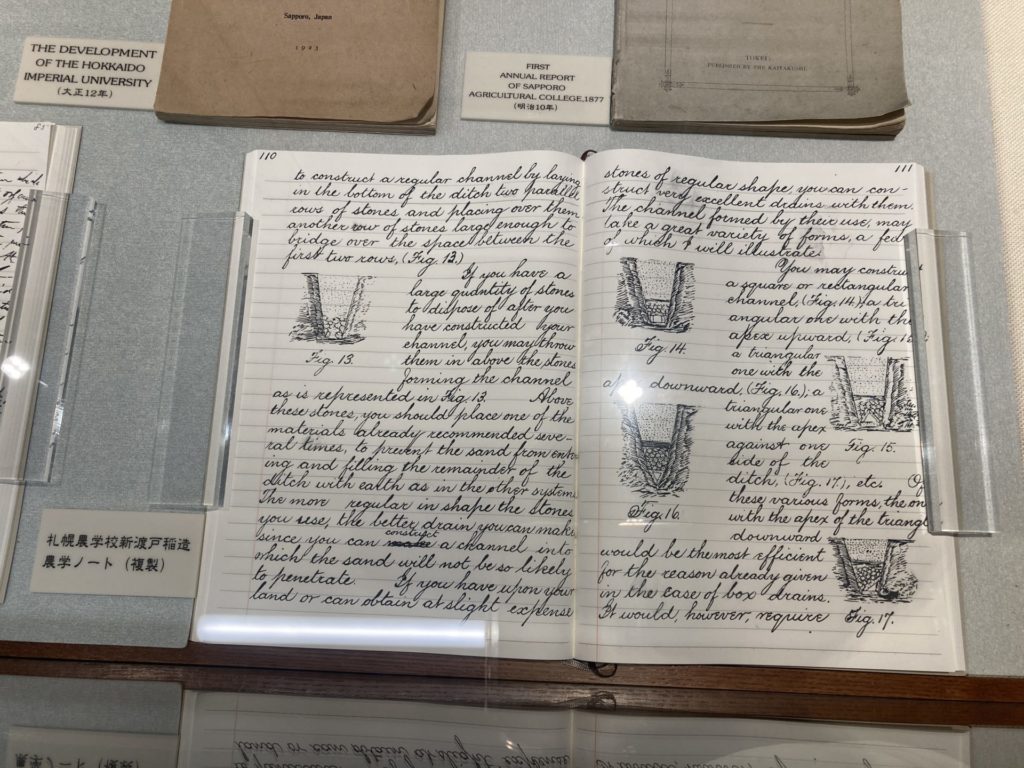 Sapporo, Japan
1923
THE DEVELOPMENT
OF THE HOKKAIDO
IMPERIAL UNIVERSITY
(大正12年)
FIRST
ANNUAL REPORT
OF SAPPORO
AGRICULTURAL COLLEGE,1877
(明治10年)
TOKEI:
PUBLISHED BY THE KAITAKUSHI.
85
110
to construct a regular channel by laying
in the bottom of the ditch two parallel
rows of stones, and placing over them
another row of stones large enough to
bridge over the space between the
first two rows, (Fig. 13.)
If you have a
large quantity of stones
to dispose of after you
have constructed your
channel, you may throw
them in above the stones
Fig. 13.
forming the channel
as is represented in Fig. 13. Above
these stones, you should place one of the
materials already recommended seve-
ral times, to prevent the sand from enter
ing and filling the remainder of the
ditch with earth as in the other systems.
The more regular in shape the stones
you use, the better drain you can make
since you can make construct a channel into
which the sand will not be so likely
to penetrate. If you have upon your
land or can obtain at slight expense
111
stones of regular shape, you can con-
struct very excellent drains with them.
The channel formed by their use, may
take a great variety of forms, a few
of which I will illustrate.
You may construct
a square or rectangular
channel, (Fig. 14.); a tri
angular one with the
apex upward, (Fig.
Fig. 14.
a triangular
one with the
downward, (Fig. 16.); a
triangular one
with the apex
against one
Fig. 15.
side of the
ditch, (Fig. 17.), etc. Of
these various forms, the one
Fig. 16.
with the apex of the triangle
downward
would be the most efficient
for the reason already given
in the case of box drains.
It would, however, require
Fig. 17.
札幌農学校新渡戸稲造
農学ノート(複製)